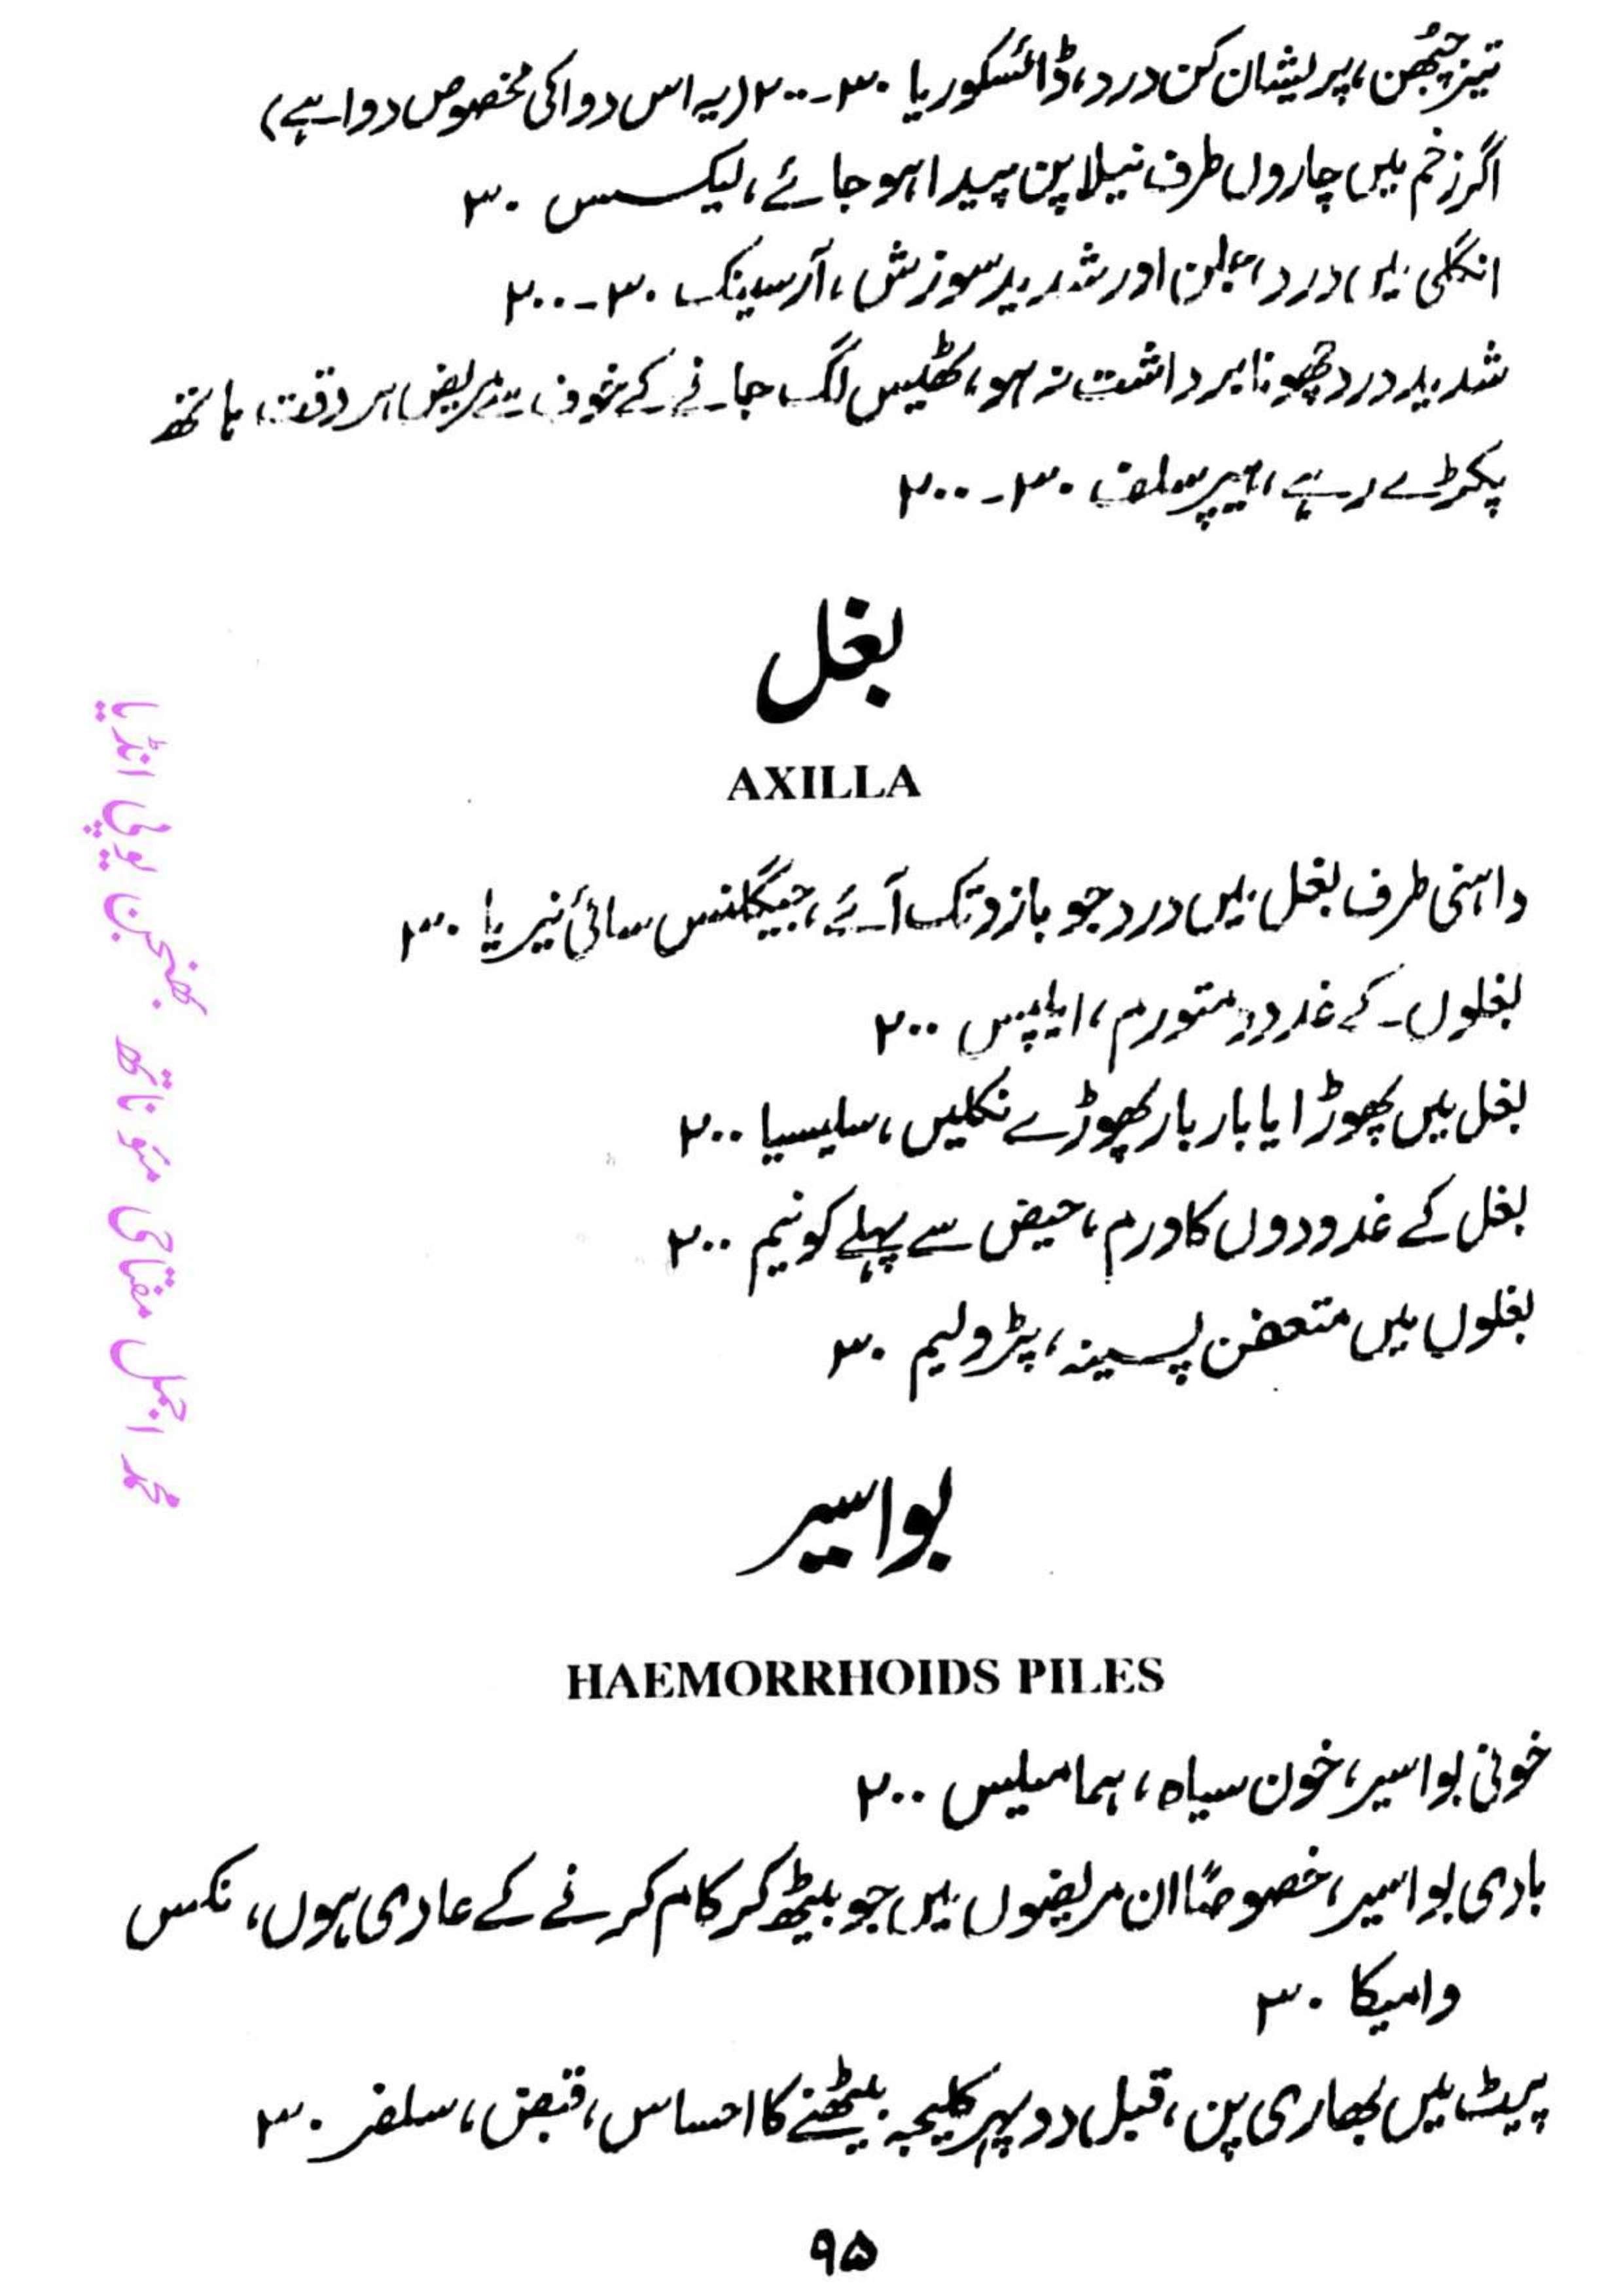 تیز چُبھن، پریشان کن درد، ڈائسکوریا ۳۰-۲۰۰ (یہ اس دوا کی مخصوص دوا ہے)
اگر زخم میں چاروں طرف نیلا پن پیدا ہو جائے، لیکسس ۳۰
انگلی میں درد، جلن اور شدید سوزش، آرسینک ۳۰-۲۰۰
شدید درد چھونا برداشت نہ ہو، ٹھیس لگ جانے کے خوف سے مریض ہر وقت ہاتھ
پکڑے رہے، ہیپر سلف ۳۰-۲۰۰
بغل
AXILLA
داہنی طرف بغل میں درد جو بازو تک آئے، جیگلنس سائی نیریا ۳۰
بغلوں کے غدود متورم، ایلپس ۲۰۰
بغل میں پھوڑا یا بار بار پھوڑے نکلیں، سلیسیا ۲۰۰
بغل کے غدودوں کا ورم، حیض سے پہلے کونیم ۲۰۰
بغلوں میں متعفن پسینہ، پٹرولیم ۳۰
بواسیر
HAEMORRHOIDS PILES
خونی بواسیر، خون سیاہ، ہمامیلس ۲۰۰
بادی بواسیر، خصوصاً ان مریضوں میں جو بیٹھ کر کام کرنے کے عادی ہوں، نکس
وامیکا ۳۰
پیٹ میں بھاری پن، قبل دوپہر کلیجہ بیٹھنے کا احساس، قبض، سلفر ۳۰
۹۵
محمد اجمل مفتاحی مئو ناتھ بھنجن یوپی انڈیا